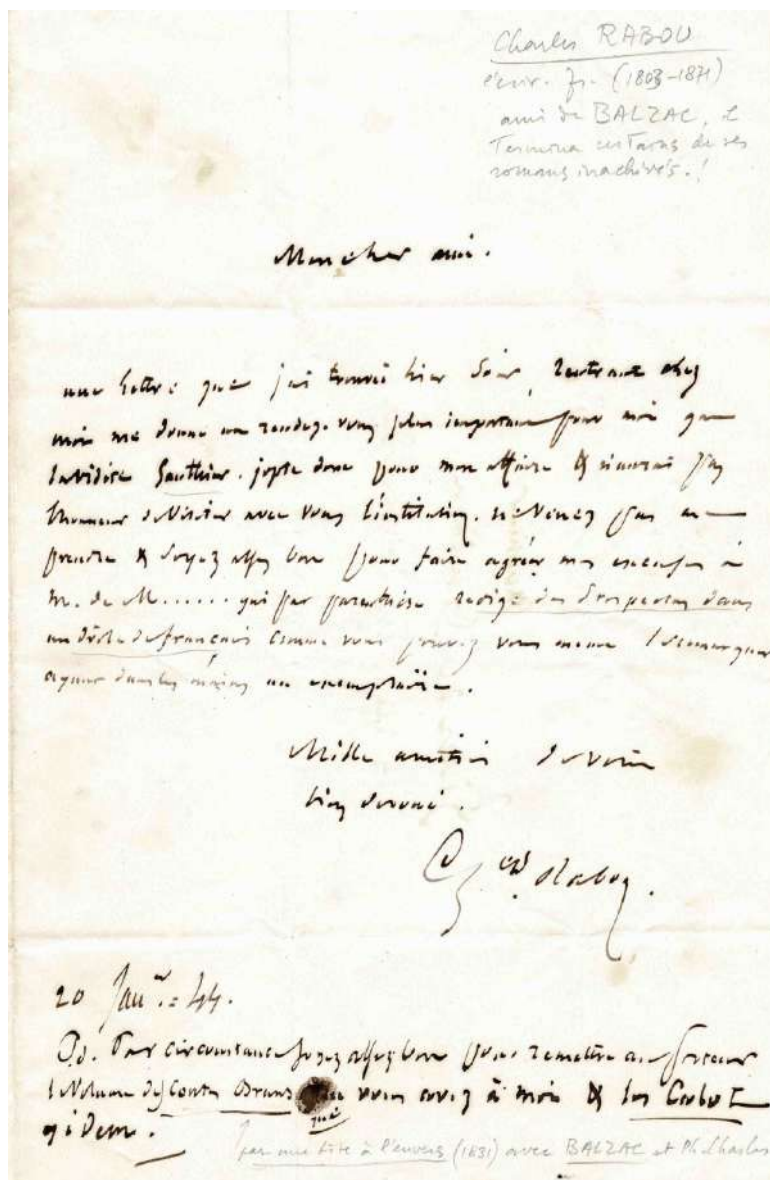 Charles RABOU
écriv. fr. (1803-1871)
ami de BALZAC, &
Termina certains de ses
romans inachevés.!
Mon cher ami.
une lettre que j'ai trouvée hier soir, rentrant chez
moi me donne un rendez-vous plus important pour moi que
Gauthier. j'opte donc pour mon affaire & n'aurai pas
l'honneur de visiter avec vous l'institution. ne venez pas me
prendre & soyez assez bon pour faire agréer mes excuses à
m. de M...... qui par parenthèse rédige des Prospectus dans
un drôle de français comme vous pouvez vous même remarquer
ayant dans les mains un exemplaire.
Mille amitiés de votre
bien dévoué.
Ch. Ed. Rabou.
20 Janr. = 44.
Ps. Par circonstance soyez assez bon pour remettre au porteur
le volume des Contes Bruns que vous avez à moi & les
idem.
par une tête à l'envers (1831) avec BALZAC et Ph. Chasles